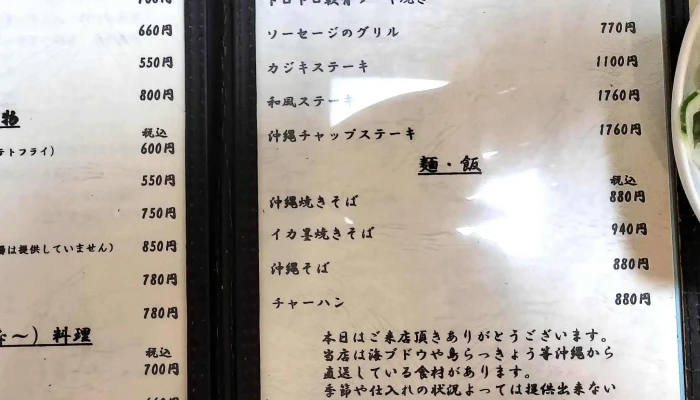 660円
550円
800円
物
税込
テトフライ） 600円
550円
750円
は提供していません） 850円
780円
780円
～）料理
税込
700円
ソーセージのグリル 770円
カジキステーキ 1100円
和風ステーキ 1760円
沖縄チャップステーキ 1760円
麺・飯
税込
沖縄焼きそば 880円
イカ墨焼きそば 940円
沖縄そば 880円
チャーハン 880円
本日はご来店頂きありがとうございます。
当店は海ブドウや島らっきょう等沖縄から
直送している食材があります。
季節や仕入れの状況よっては提供出来ない